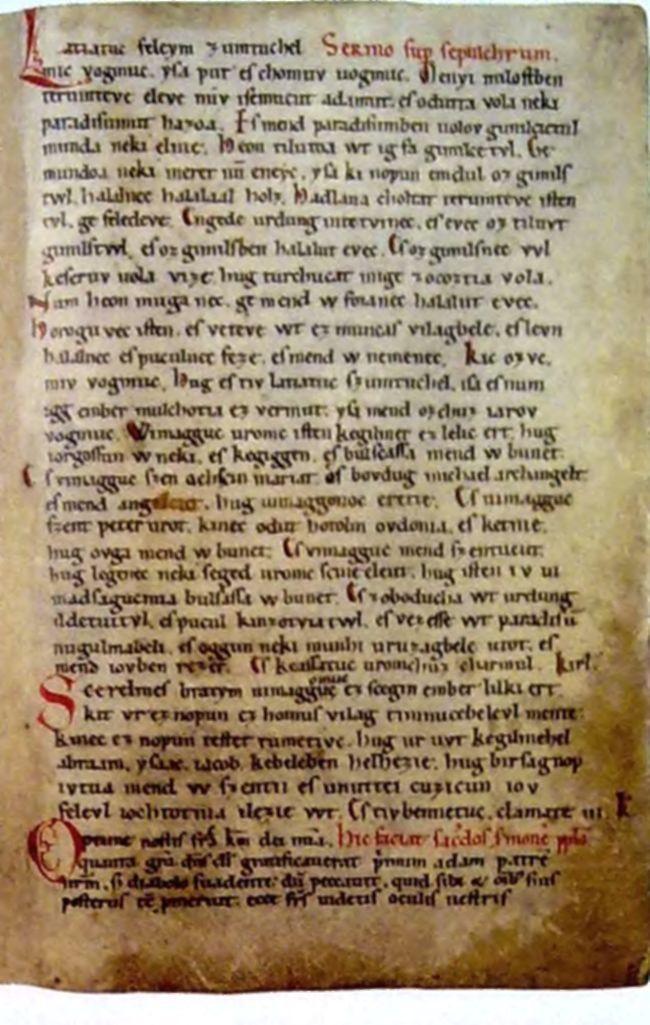 Latiatuc feleym zumtuchel Sermo sup sepulchrum.
mic vogmuc. ysa pur es chomuv uogmuc. Menyi milostben
terumteve eleve miv isemucut adamut. es odutta vola neki
paradisumut hazoa. Es mend paradisumben uolov gimilcictul
munda neki elnie. Heon tilutoa wt ig fa gimilcetvl. Ge
mundoa neki meret nū eneyc. ysa ki nopun emdul oz gimils
twl. halalnec halalaal holz. Hadlaua choltat terumteve isten
tvl. ge feledeve. Engede urdung intetvinec. es evec oz tiluvt
gimilstwl. es oz gimilsben halalut evec. Es oz gimilsnec vvl
keseruv uola vize. hug turchucat mige zocoztia vola.
Num heon muga nec. ge mend w foianec halalut evec.
Horogu vec isten. es veteve wt ez muncas vilagbele. es levn
halalnec es puculnec feze. es mend w nemenec. Kic ozvc.
miv vogmuc. Hug es tiv latiatuv szumtuchel. isa es num
igg ember mulchotia ez vermut. ysa mend ozchuz iarov
vogmuc. Wimagguc uromc isten kegilmet ez lelic ert. hug
iorgossun w neki. es kegiggen. es bulsassa mend w bunet.
Es vimagguc szen achscin mariat. es bovdug michael archangelt.
es mend angelcut. hug uimaggonoc erette. Es uimagguc
szent peter urot. kinec odut hotolm ovdonia. es ketnie.
hug ovga mend w bunet. Es vimagguc mend szentucut.
hug legenec neki seged uromc scine eleut. hug isten iv ui
madsagucmia bulsassa w bunet. Es zoboducha wt urdung
ildetuitvl. es pucul kinzotviatwl. es vezesse wt paradisū
nugulmabeli. es oggun neki munhi uruzagbele utot. es
mend iovben rezet. Es keassatuc uromchuz charmul. kirl.
Scerelmes bratym uimagguc omuc ez scegin ember lilki ert.
kit vr ez nopun ez homus vilag timnucebelevl mente.
kinec ez nopun testet tumetivc. hug ur uvt kegilmehel
abraam. ysaac. iacob. kebeleben helhezie. hug birsagnop
ivtva mend w szentii es unuttei cuzicun iov
felevl iochtotnia ilezie wt. Es tiv bennetuc. clamate iii. K